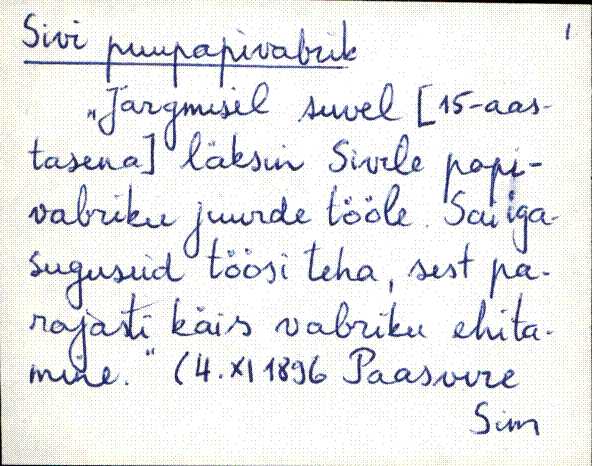 1
Sivi puupapivabrik
"Järgmisel suvel [15-aas-
tasena] läksin Sivile papi-
vabriku juurde tööle. Sai iga-
suguseid töösi teha, sest pa-
rajasti käis vabriku ehita-
mine." (4.XI 1896 Paasvere
Sim